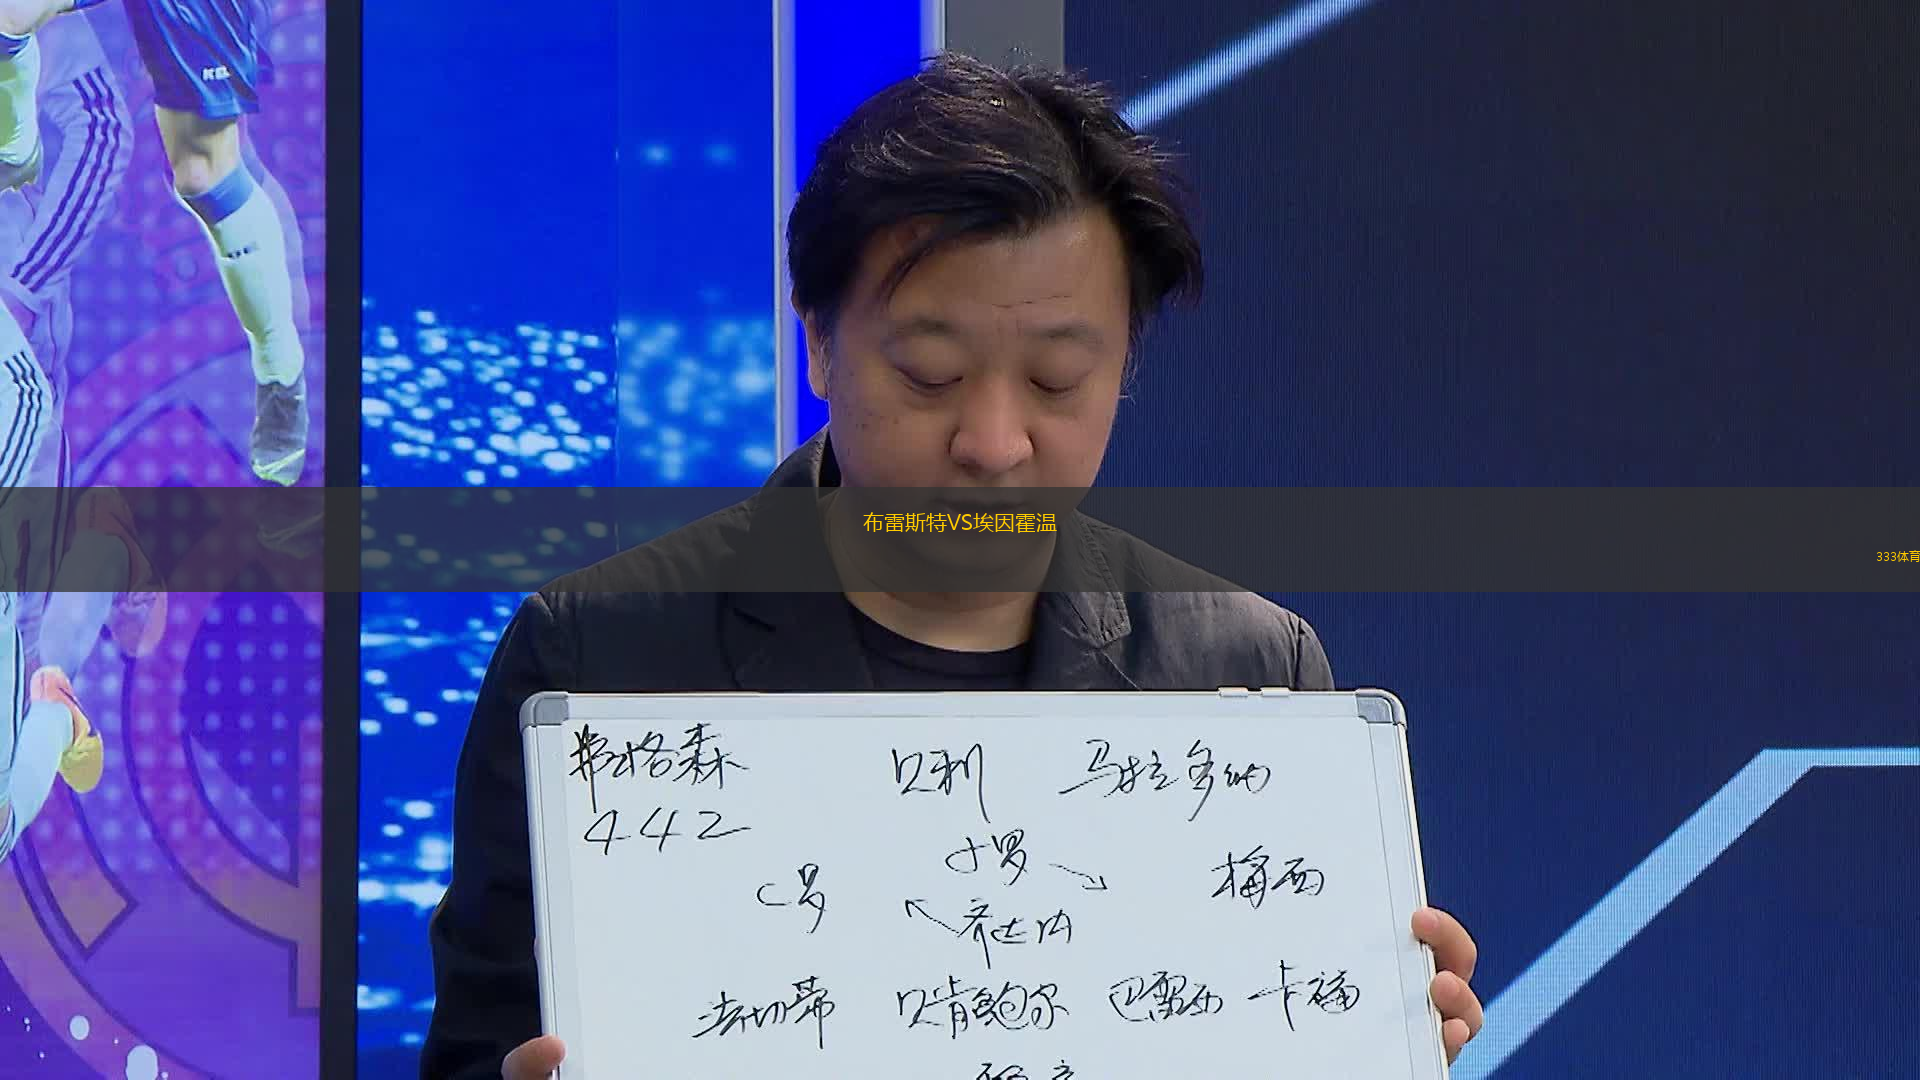 布雷斯特VS埃因霍温
333体育
弗格森 贝利 马拉多纳
442
小罗
C罗 梅西
齐达内
法切蒂 贝肯鲍尔 巴雷西 卡福